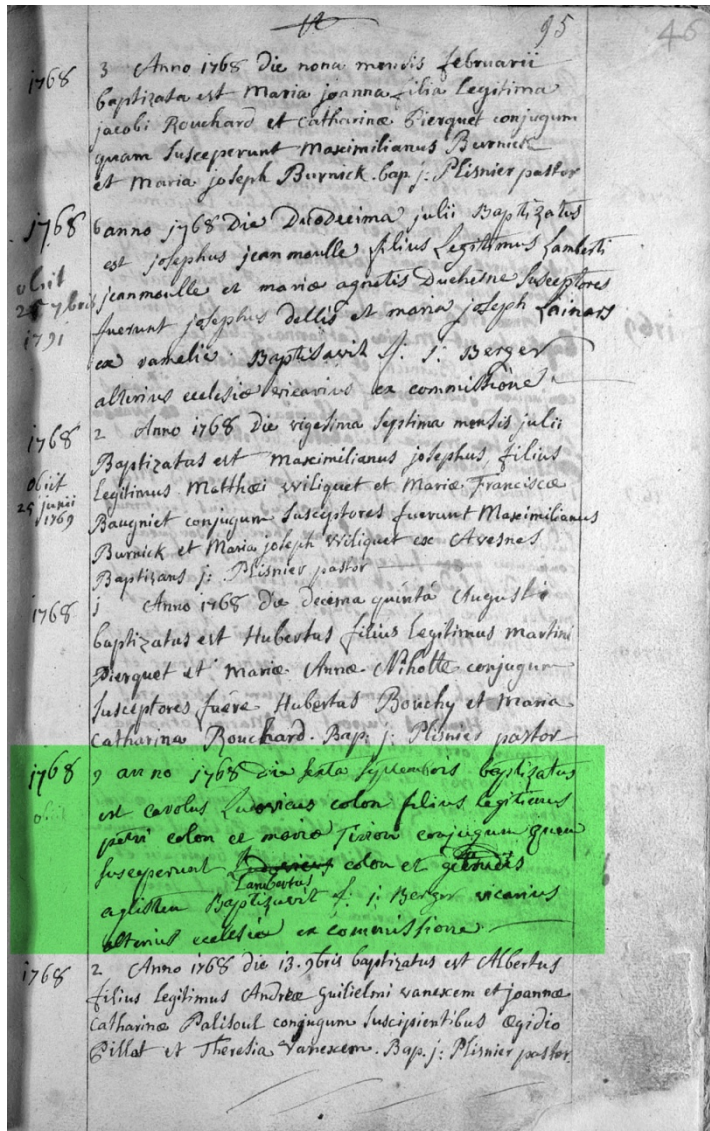 95
46
1768 3 Anno 1768 die nona mensis februarii
baptizata est Maria joanna filia Legitima
jacobi Rouchard et Catharinæ Pierquet conjugum
quam Susceperunt Maximilianus Burnick
et Maria joseph Burnick. bap j: Plisnier pastor
1768 6 anno 1768 Die Duodecima julii Baptizatus
est josephus jeanmoulle filius Legitimus Lamberti
obiit jeanmoulle et mariæ agnetis Duchesne Susceptores
25 7bris fuerunt josephus dellis et maria joseph Lainars
1791 ex ramelie. Baptisavit f. j: Berger
alterius ecclesiæ vicarius ex commissione
1768 2 Anno 1768 die vigesima Septima mensis julii
Baptizatus est Maximilianus josephus, filius
obiit Legitimus Matthæi Wiliquet et Mariæ Franciscæ
25 junii Baugniet conjugum Susceptores fuerunt Maximilianus
1769 Burnick et Maria joseph Wiliquet ex Avesnes
Baptizans j: Plisnier pastor
1768 j Anno 1768 die decima quinta Augusti
baptizatus est Hubertus filius Legitimus martini
Pierquet et Mariæ Annæ Niholle conjugum
Susceptores fuére Hubertus Bouchy et Maria
Catharina Rouchard. Bap: j: Plisnier pastor
1768 9 anno 1768 die Sexta Septembris baptizatus
obiit est carolus Ludovicus colon filius legitimus
petri colon et mariæ Tirion conjugum quem
susceperunt colon et
Lambertus
Baptizavit f. j: Berger vicarius
alterius ecclesiæ ex commissione
1768 2 Anno 1768 die 13. 9bris baptizatus est Albertus
filius Legitimus Andreæ Guilielmi vanexem et joannæ
Catharinæ Palisoul conjugum Suscipientibus Ægidio
Pillot et Theresia Vanexem. Bap. j: Plisnier pastor.